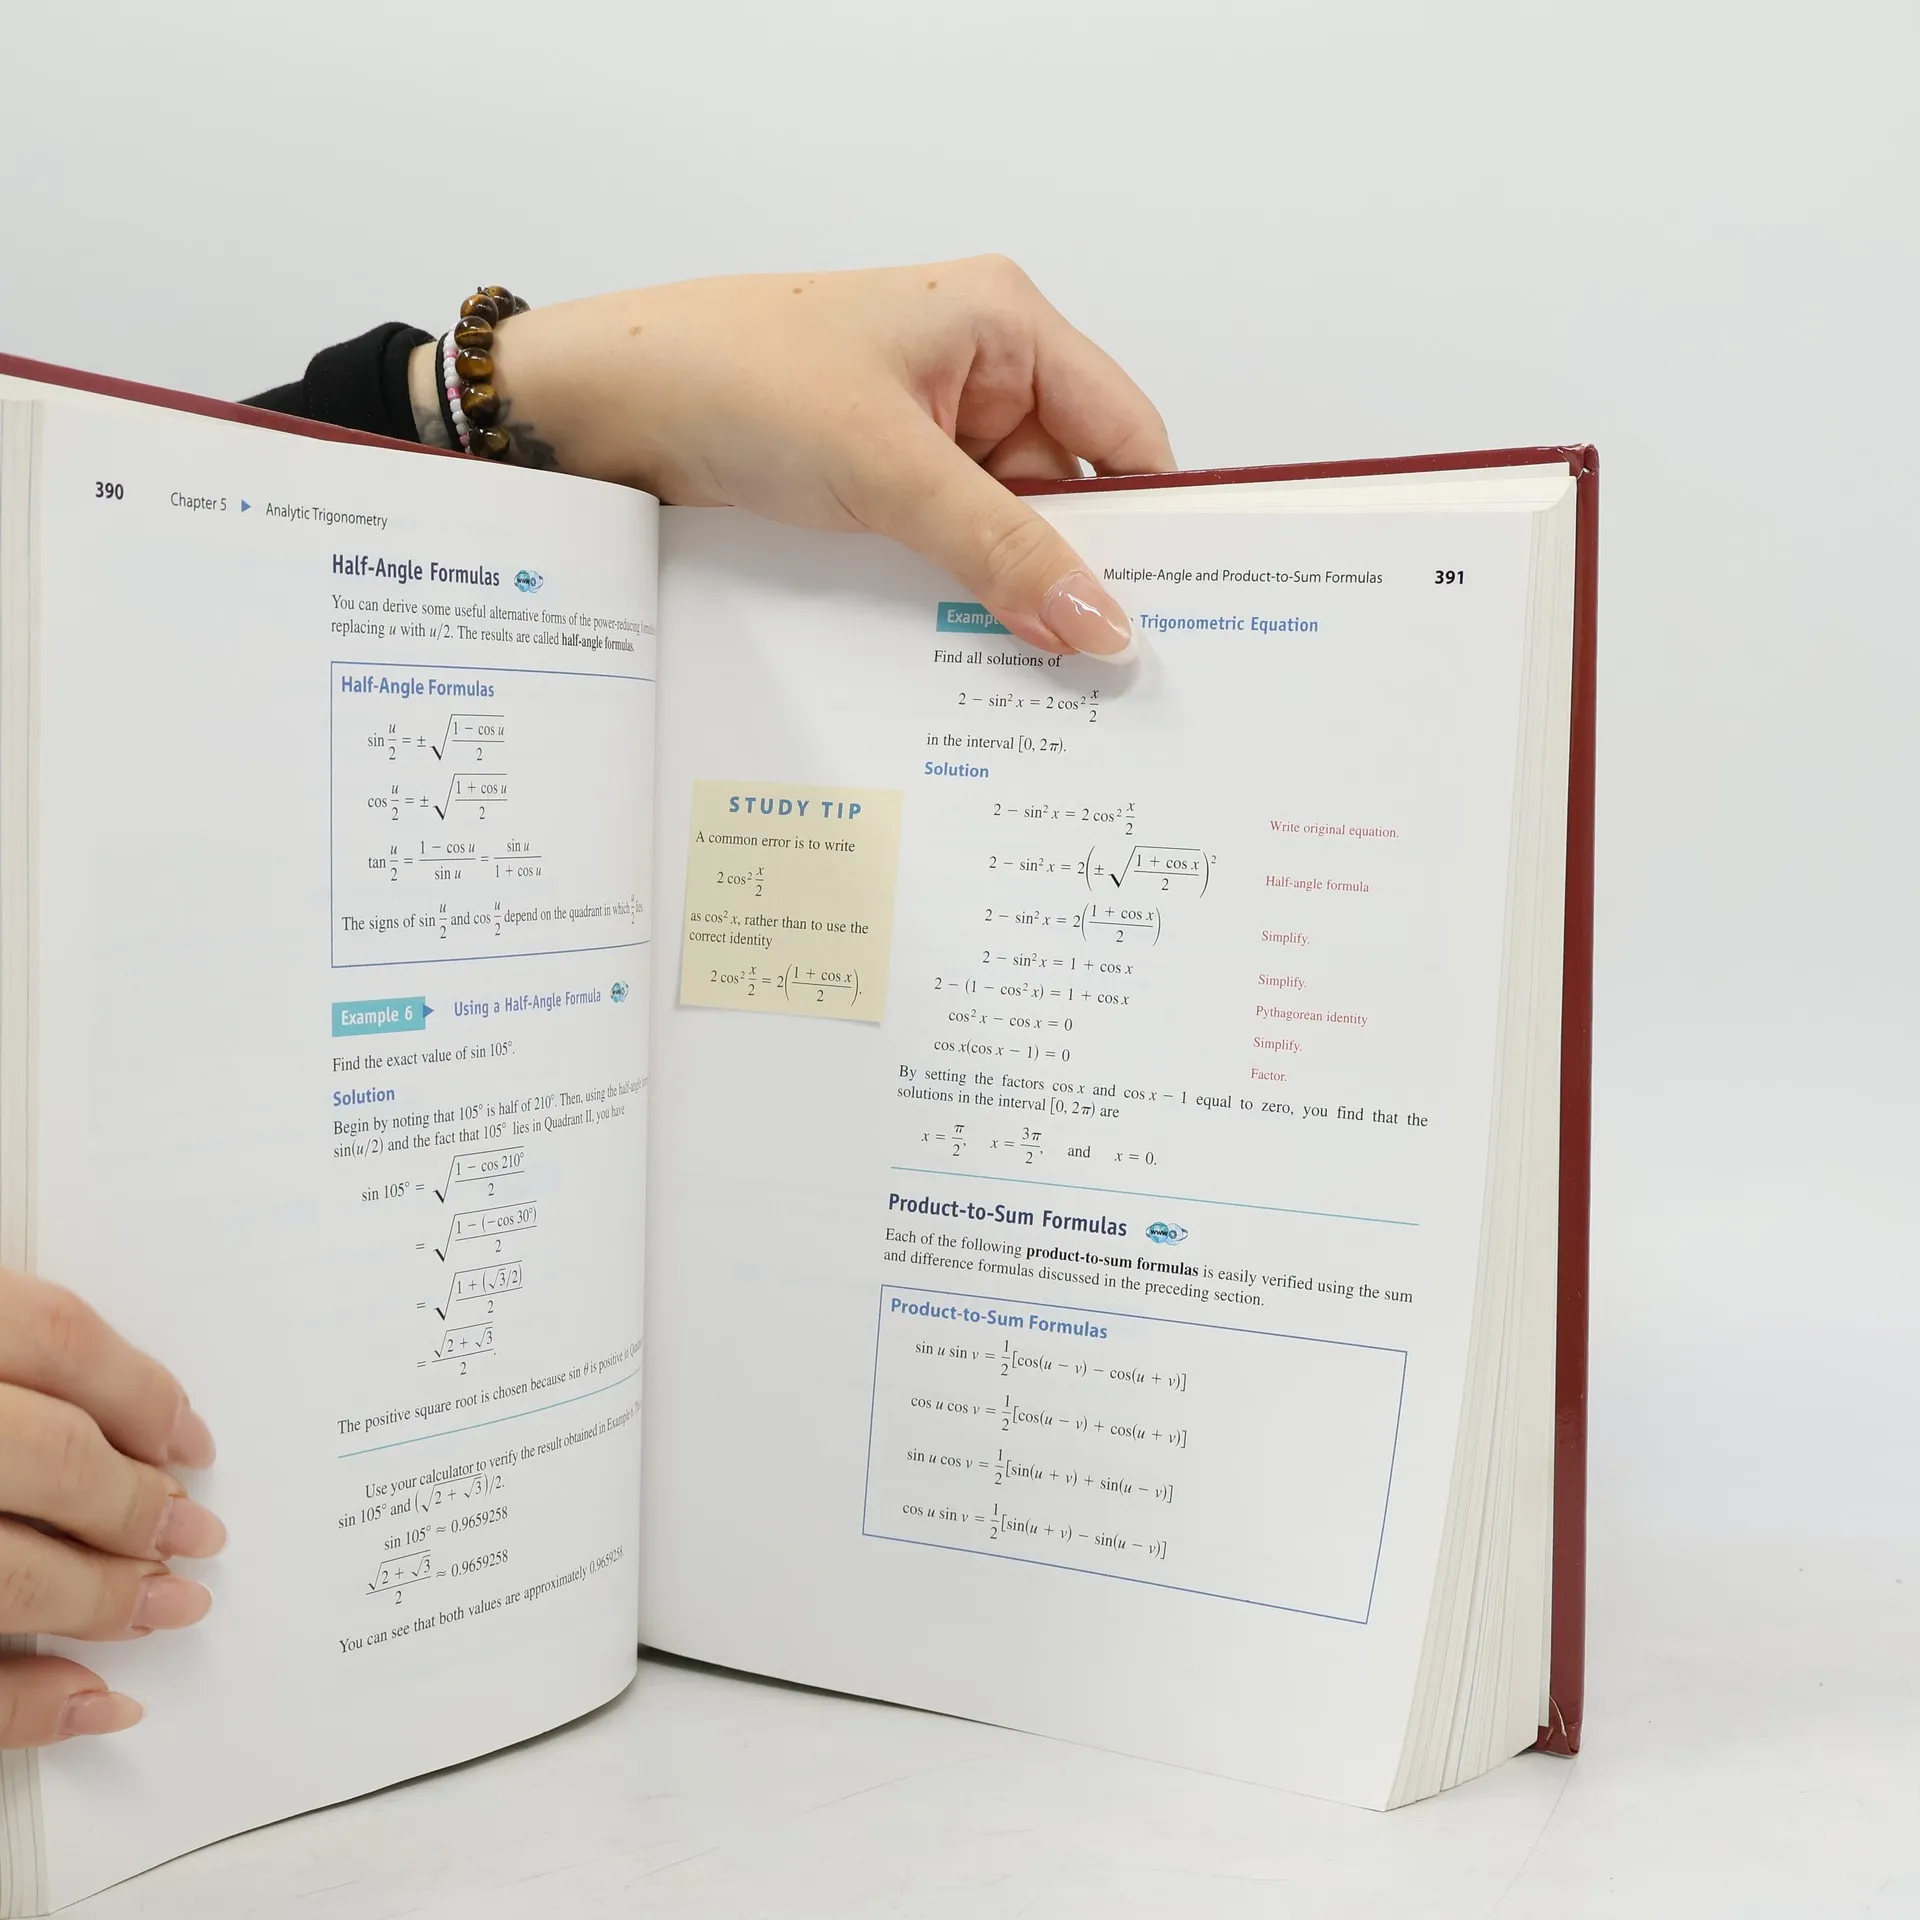 390 Chapter 5 ▶ Analytic Trigonometry
Half-Angle Formulas
You can derive some useful alternative forms of the power-reducing
replacing u with u/2. The results are called half-angle formulas.
Half-Angle Formulas
sin u/2 = ±√((1 − cos u)/2)
cos u/2 = ±√((1 + cos u)/2)
tan u/2 = (1 − cos u)/(sin u) = (sin u)/(1 + cos u)
The signs of sin u/2 and cos u/2 depend on the quadrant in which u/2 lies.
Example 6 ▶ Using a Half-Angle Formula
Find the exact value of sin 105°.
Solution
Begin by noting that 105° is half of 210°. Then, using the half-angle
sin(u/2) and the fact that 105° lies in Quadrant II, you have
sin 105° = √((1 − cos 210°)/2)
= √((1 − (−cos 30°))/2)
= √((1 + (√3/2))/2)
= √(2 + √3)/2.
The positive square root is chosen because sin θ is positive in
Use your calculator to verify the result obtained in Example 6.
sin 105° and (√(2 + √3))/2.
sin 105° ≈ 0.9659258
√(2 + √3)/2 ≈ 0.9659258
You can see that both values are approximately 0.9659258.
Multiple-Angle and Product-to-Sum Formulas 391
Trigonometric Equation
Find all solutions of
2 − sin² x = 2 cos² x/2
in the interval [0, 2π).
Solution
2 − sin² x = 2 cos² x/2 Write original equation.
2 − sin² x = 2(±√((1 + cos x)/2))² Half-angle formula
2 − sin² x = 2((1 + cos x)/2) Simplify.
2 − sin² x = 1 + cos x Simplify.
2 − (1 − cos² x) = 1 + cos x Pythagorean identity
cos² x − cos x = 0 Simplify.
cos x(cos x − 1) = 0 Factor.
By setting the factors cos x and cos x − 1 equal to zero, you find that the
solutions in the interval [0, 2π) are
x = π/2, x = 3π/2, and x = 0.
STUDY TIP
A common error is to write
2 cos² x/2
as cos² x, rather than to use the
correct identity
2 cos² x/2 = 2((1 + cos x)/2).
Product-to-Sum Formulas
Each of the following product-to-sum formulas is easily verified using the sum
and difference formulas discussed in the preceding section.
Product-to-Sum Formulas
sin u sin v = 1/2[cos(u − v) − cos(u + v)]
cos u cos v = 1/2[cos(u − v) + cos(u + v)]
sin u cos v = 1/2[sin(u + v) + sin(u − v)]
cos u sin v = 1/2[sin(u + v) − sin(u − v)]